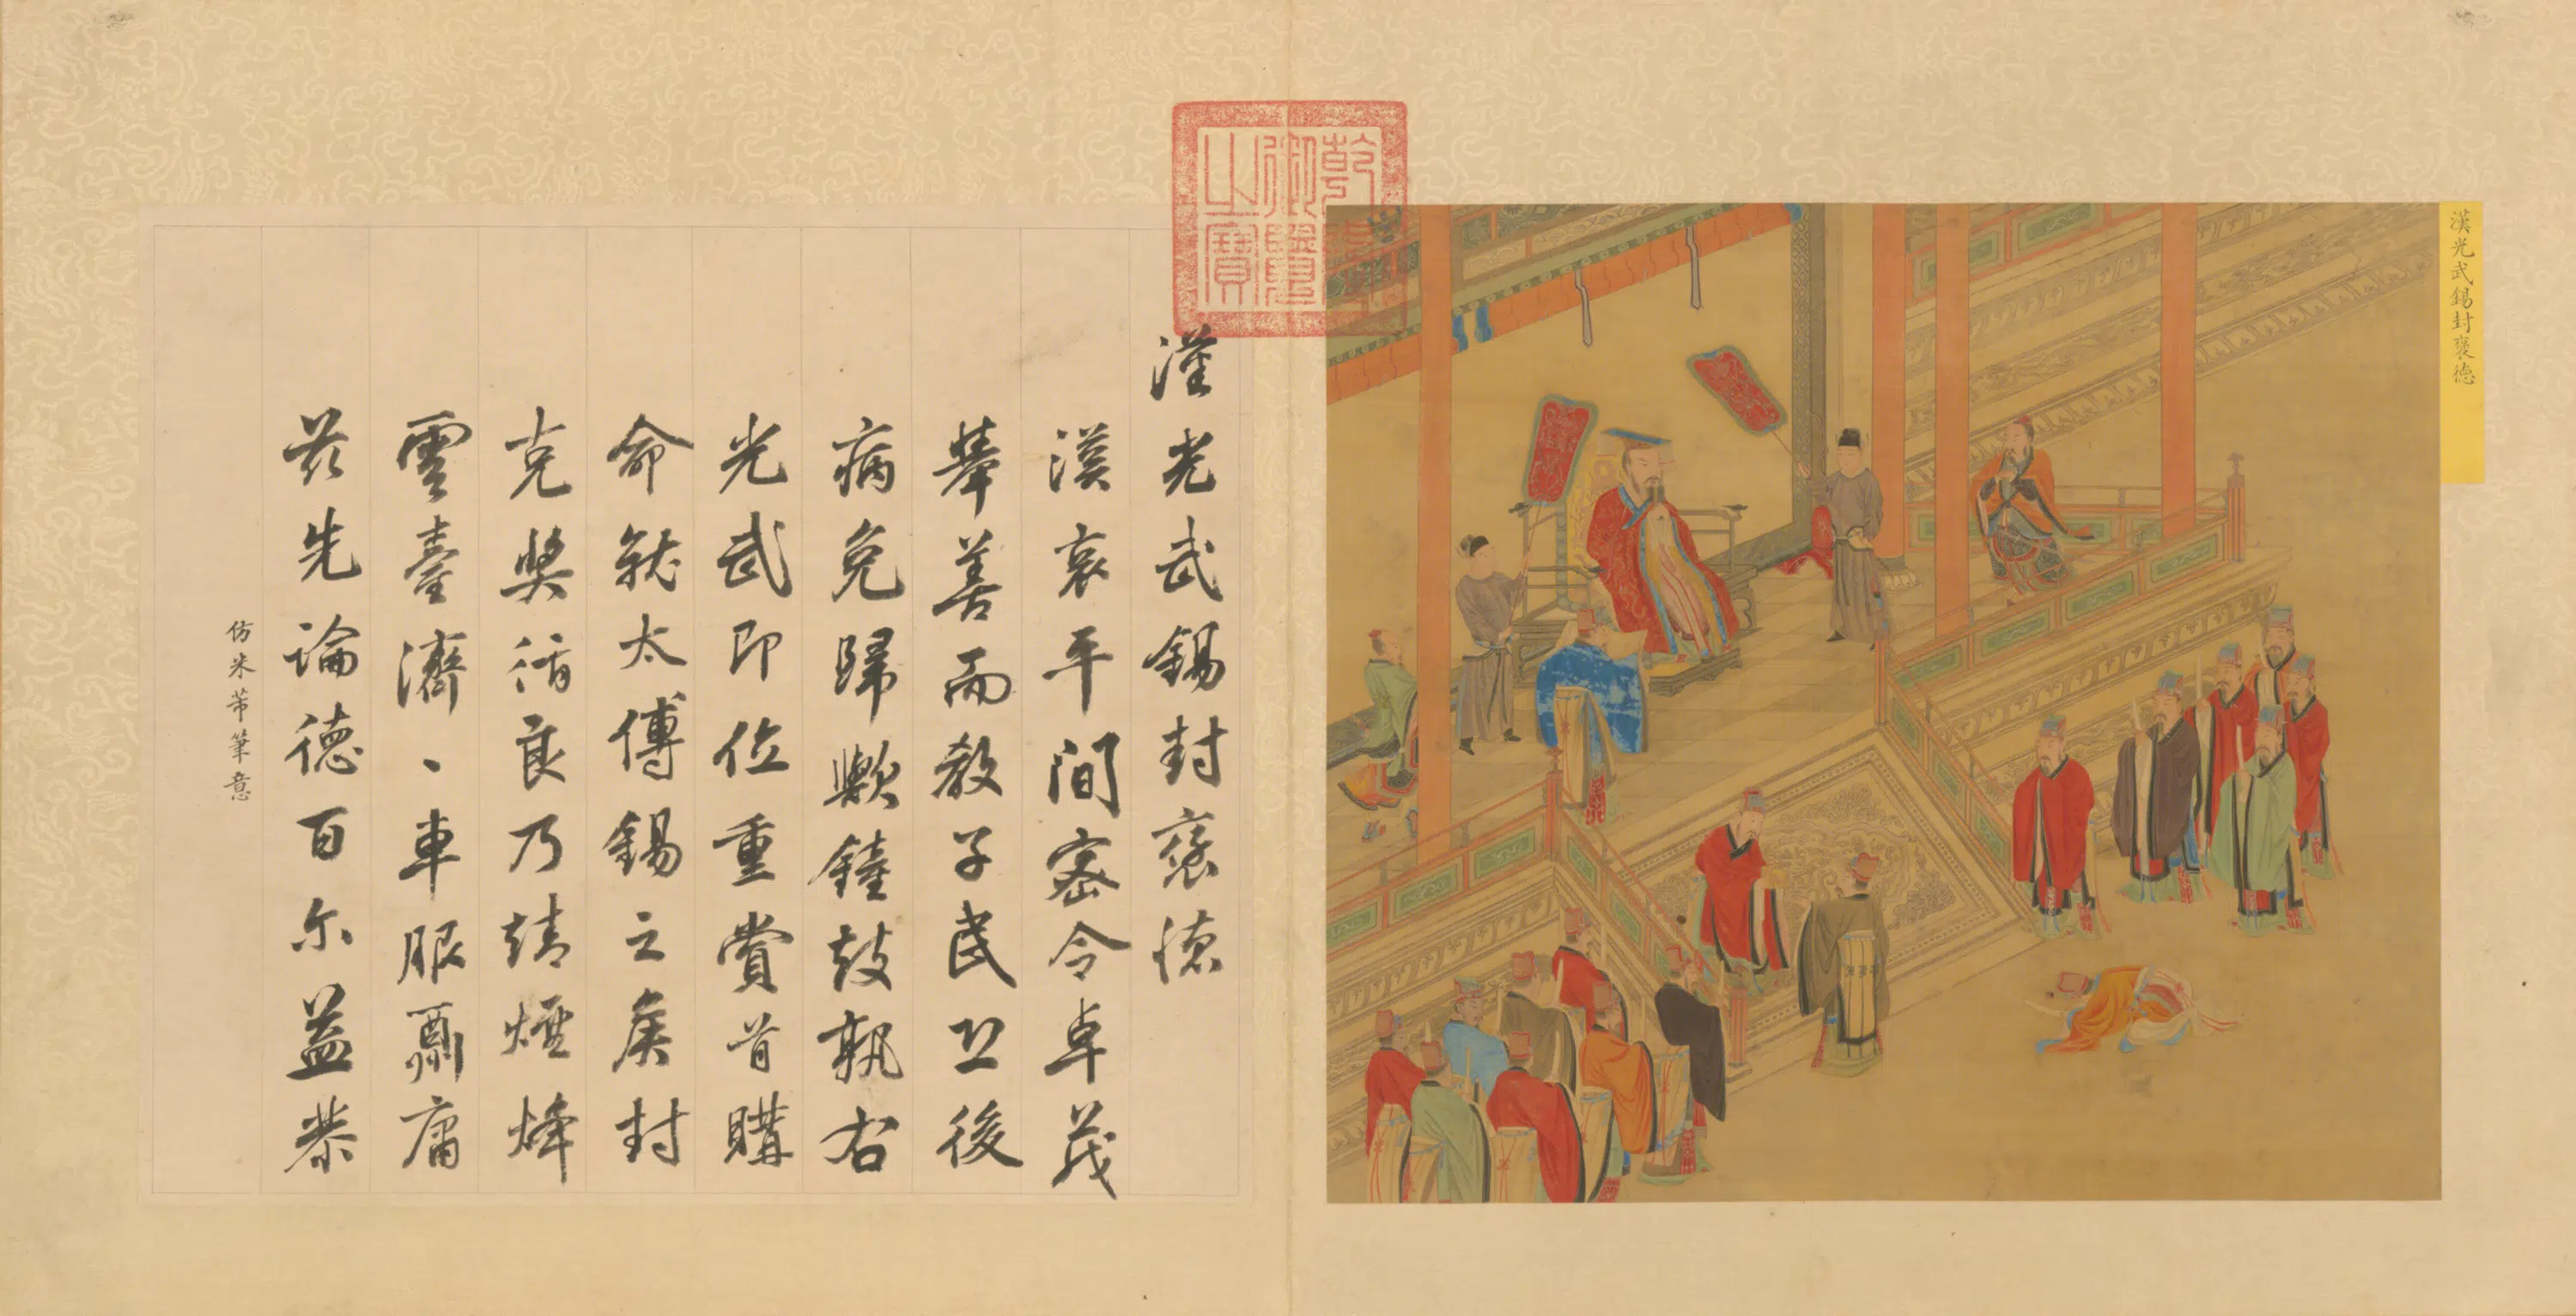 漢光武錫封褒德
乾隆御覽之寶
漢光武錫封褒德
漢哀平間密令卓茂
舉善而教子民
病免歸歟鐘鼓孰右
光武即位重賞首購
命就太傅錫之矦封
克奬循良乃靖煙烽
雲臺濟、車服酬庸
茲先論德百尔益恭
仿米芾筆意